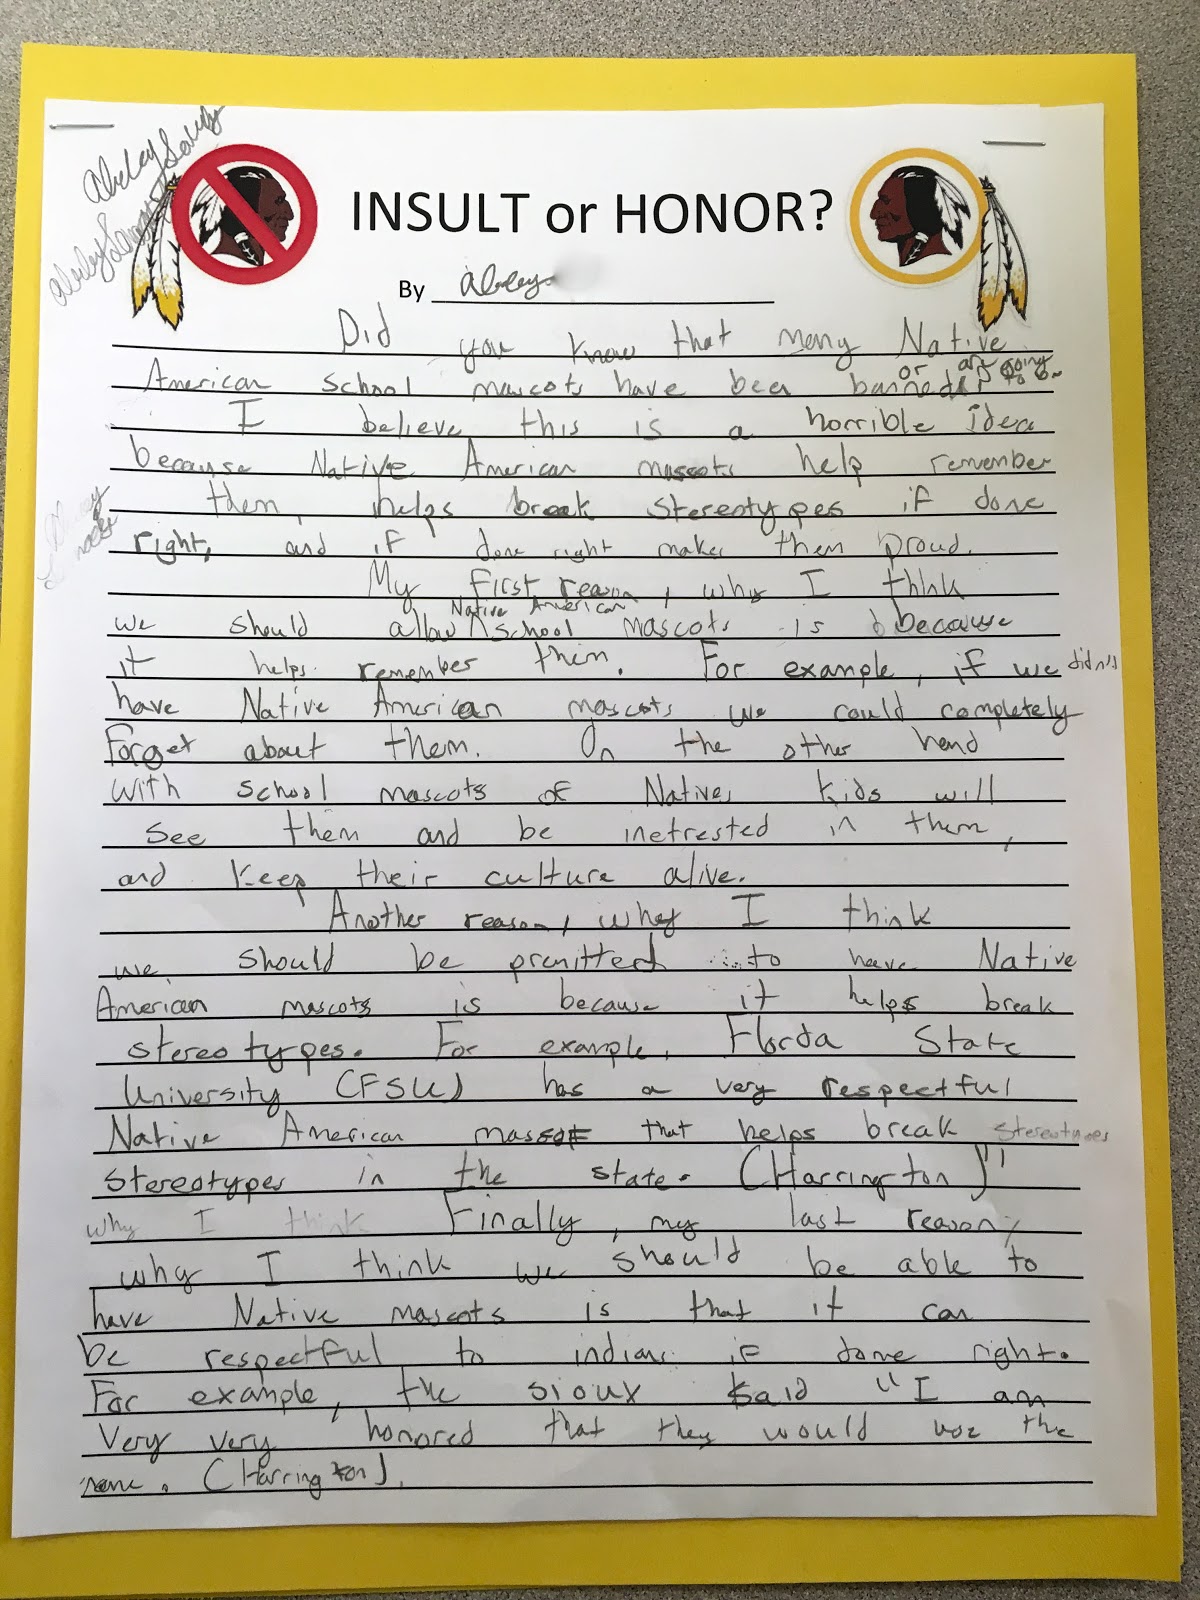 INSULT or HONOR?
By
Did you know that many Native
or are going to be
American school mascots have been banned
I believe this is a horrible idea
because Native American mascots help remember
them, helps break stereotypes if done
right, and if done right makes them proud.
My first reason, why I think
Native American
we should allow school mascots is because
it helps remember them. For example, if we didn't
have Native American mascots we could completely
Forget about them. On the other hand
with school mascots of Natives kids will
see them and be inetrested in them,
and keep their culture alive.
Another reason, why I think
we should be premitted to have Native
American mascots is because it helps break
stereotypes. For example, Florda State
University (FSU) has a very respectful
Native American mascot that helps break stereotypes
stereotypes in the state. (Harrington)"
why I think Finally, my last reason,
why I think we should be able to
have Native mascots is that it can
be respectful to indians if done right.
For example, the sioux said "I am
very very honored that they would use the
name. (Harrington).